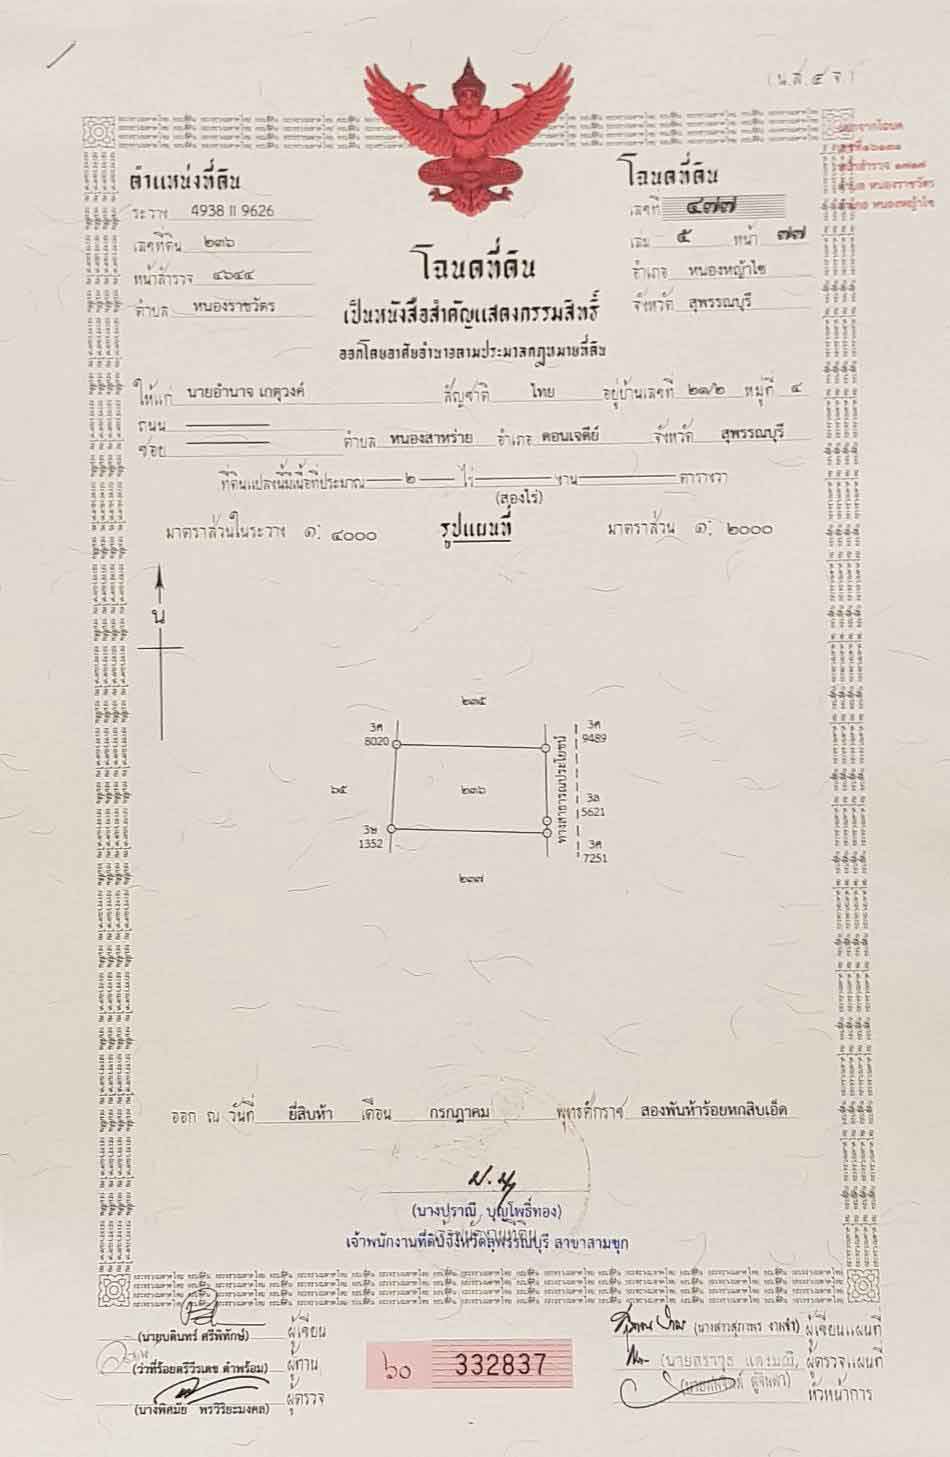 (น.ส. ๔ จ)
ตำแหน่งที่ดิน
ระวาง 4938 II 9626
เลขที่ดิน ๒๓๖
หน้าสำรวจ ๔๖๔๔
ตำบล หนองราชวัตร
โฉนดที่ดิน
เลขที่ ๔๗๗
เล่ม ๕ หน้า ๗๗
อำเภอ หนองหญ้าไซ
จังหวัด สุพรรณบุรี
ตำบล หนองราชวัตร
อำเภอ หนองหญ้าไซ
โฉนดที่ดิน
เป็นหนังสือสำคัญแสดงกรรมสิทธิ์
ออกโดยอาศัยอำนาจตามประมวลกฎหมายที่ดิน
ให้แก่ นายอำนาจ เกตุวงค์ สัญชาติ ไทย อยู่บ้านเลขที่ ๒๓/๒ หมู่ที่ ๔
ถนน
ซอย ตำบล หนองสาหร่าย อำเภอ ดอนเจดีย์ จังหวัด สุพรรณบุรี
ที่ดินแปลงนี้มีเนื้อที่ประมาณ ๒ ไร่ งาน ตารางวา
(สองไร่)
มาตราส่วนในระวาง ๑: ๔๐๐๐ รูปแผนที่ มาตราส่วน ๑: ๒๐๐๐
น
๒๓๕
3ศ
8020
3ศ
9489
๖๕
๒๓๖
ทางสาธารณประโยชน์
3ล
5621
3ษ
1352
3ศ
7251
๒๓๗
ออก ณ วันที่ ยี่สิบห้า เดือน กรกฎาคม พุทธศักราช สองพันห้าร้อยหกสิบเอ็ด
(นางปราณี บุญโพธิ์ทอง)
เจ้าพนักงานที่ดินจังหวัดสุพรรณบุรี สาขาสามชุก
(นายบดินทร์ ศรีพิทักษ์) ผู้เขียน
(ว่าที่ร้อยตรีวีรเดช ดำพร้อม) ผู้ทาน
(นางพิศมัย พรวิริยะมงคล) ผู้ตรวจ
๖๐ 332837
ผู้เขียนแผนที่
ผู้ตรวจแผนที่
หัวหน้าการ